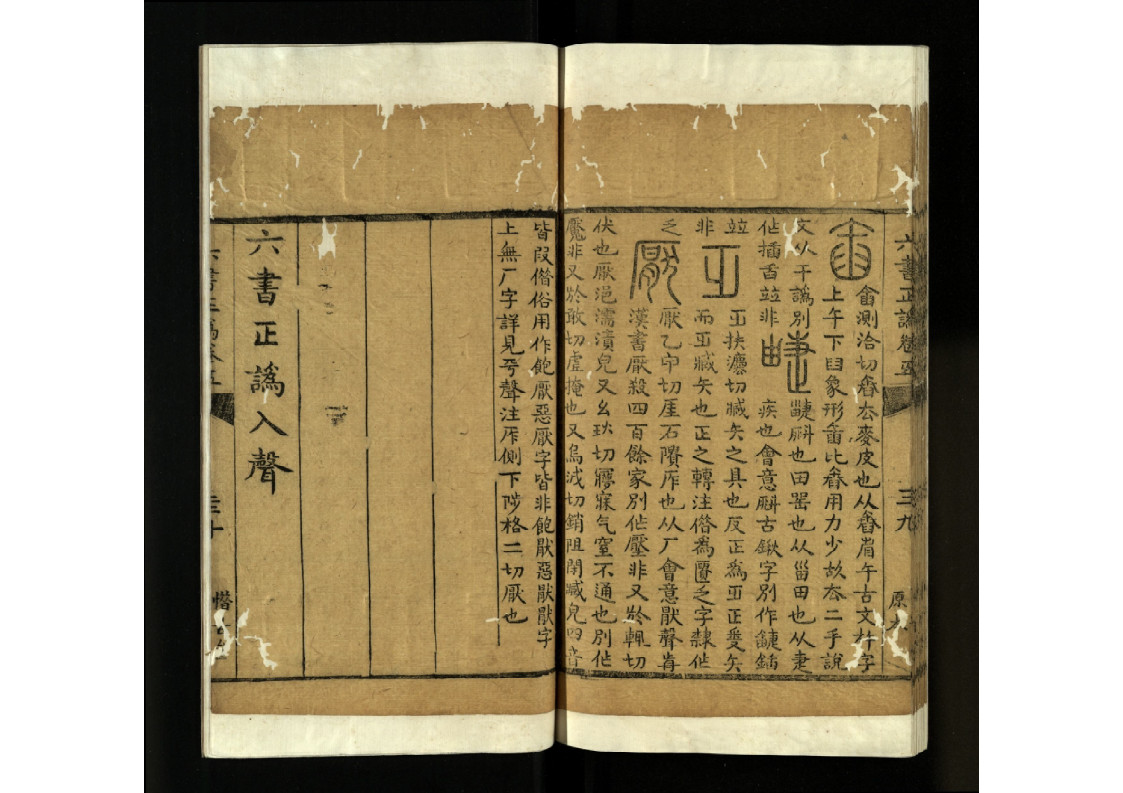 六書正譌卷五 三九 原九
臿測洽切舂厺麥皮也从舂省午古文杵字
上午下臼象形臿比舂用力少故厺二手說
文从干譌別 疀㪺也田器也从甾田也从疌
作插舌竝非 疾也會意㪺古鍬字別作鍤
竝 㱏扶灋切臧矢之具也反正為㱏正受矢
非 而㱏臧矢也正之轉注借為匱乏字隸作
乏 厭乙卬切厓石隤厈也从厂會意猒聲㫖
漢書厭殺四百餘家別作壓非又於輒切
伏也厭浥濡漬皃又幺切寱寐气窒不通也別作
魘非又於敢切虛掩也又烏減切銷阻閉臧皃四音
皆叚借俗用作飽厭惡厭字皆非飽猒惡猒猒字
上無厂字詳見平聲注厈側下陟格二切厭也
六書正譌入聲
六書正譌卷五 三十